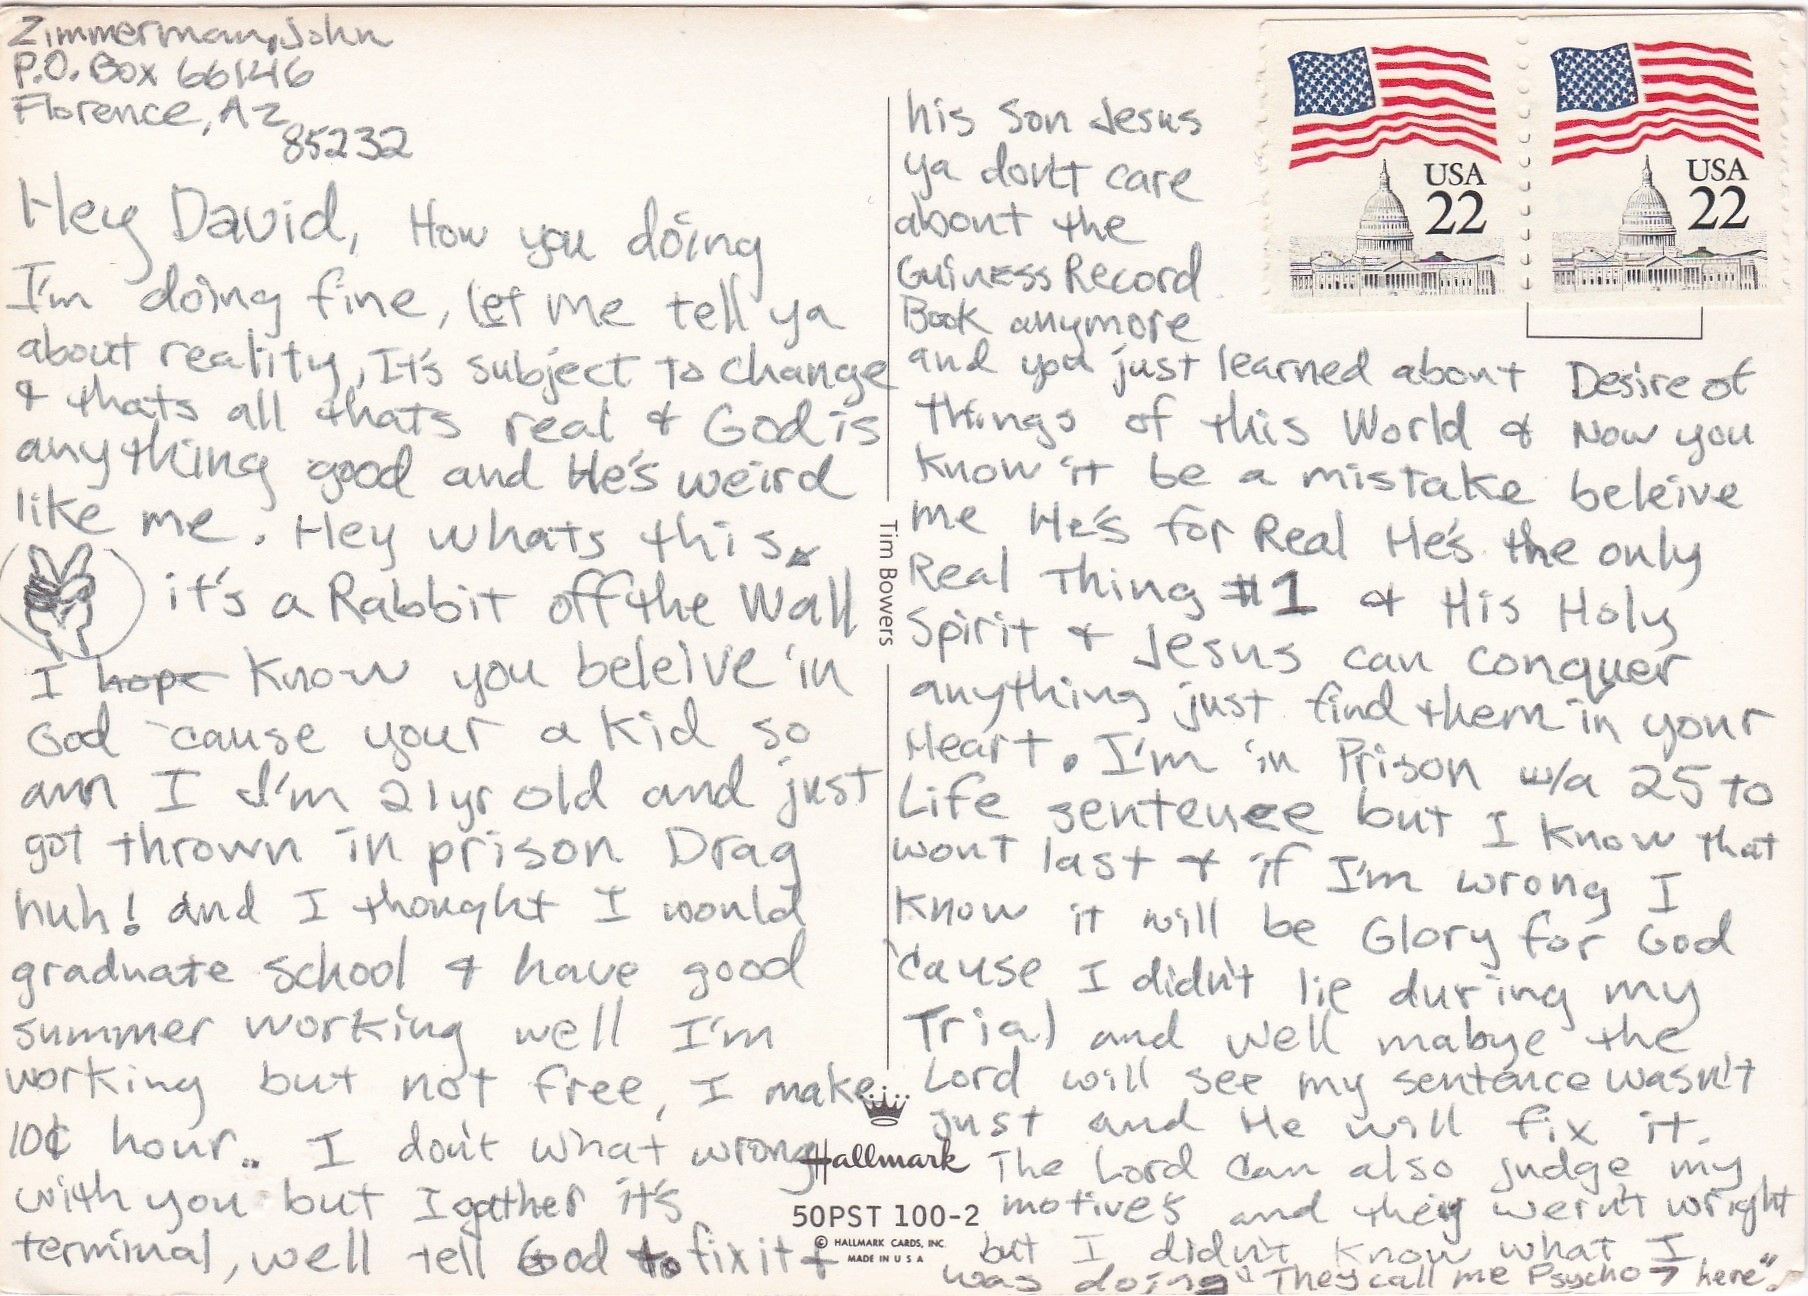 Zimmerman, John
P.O. Box 66146
Florence, Az
85232
Hey David, How you doing
I'm doing fine, let me tell ya
about reality, It's subject to change
& thats all thats real & God is
anything good and He's weird
like me. Hey whats this
it's a Rabbit off the Wall
I hope know you beleive in
God 'cause your a kid so
am I I'm 21yr old and just
got thrown in prison Drag
huh! and I thought I would
graduate school & have good
summer working well I'm
working but not free, I make
10¢ hour.. I don't what wrong
with you but I gather it's
terminal, well tell God to fix it &
his son Jesus
ya don't care
about the
Guiness Record
Book anymore
and you just learned about Desire of
things of this World & Now you
know it be a mistake beleive
me He's for Real He's the only
Real Thing #1 & His Holy
Spirit & Jesus can conquer
anything just find them in your
Heart. I'm in Prison w/a 25 to
Life sentence but I know that
wont last & if I'm wrong I
know it will be Glory for God
'cause I didn't lie during my
Trial and well mabye the
Lord will see my sentence wasn't
just and He will fix it.
The Lord can also judge my
motives and they wern't wright
but I didn't know what I
was doing "They call me Psycho → here".
Tim Bowers
USA
22
USA
22
Hallmark
50PST 100-2
© HALLMARK CARDS, INC.
MADE IN U S A